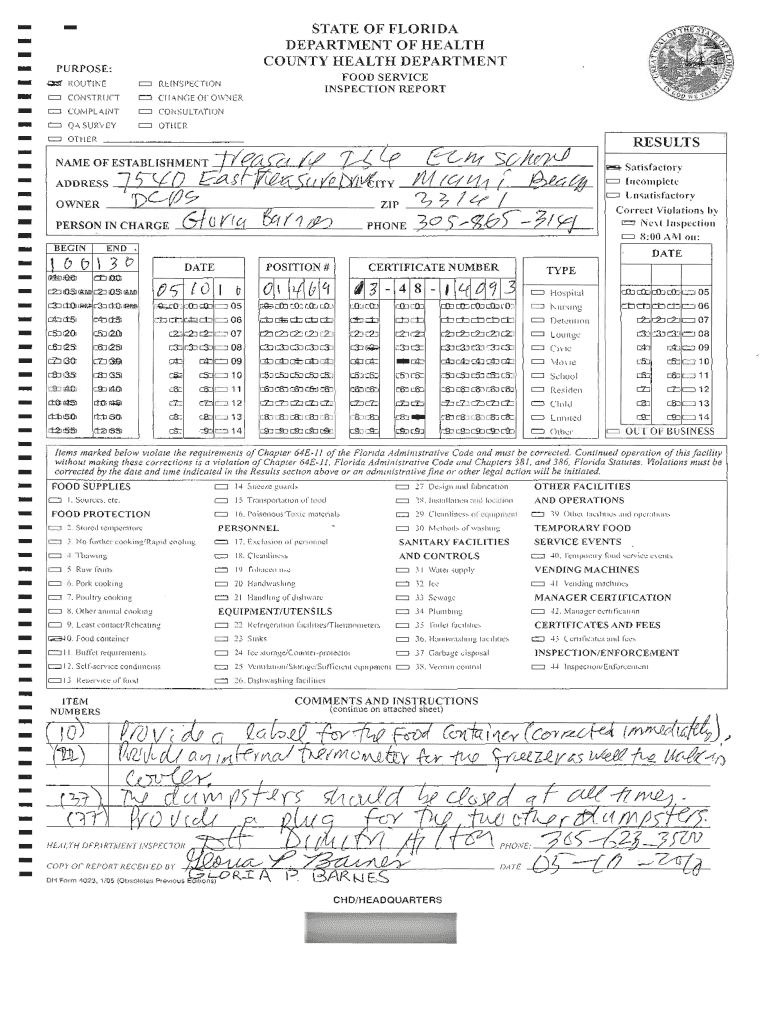 STATE OF FLORIDA
DEPARTMENT OF HEALTH
COUNTY HEALTH DEPARTMENT
FOOD SERVICE
INSPECTION REPORT
PURPOSE:
ROUTINE REINSPECTION
CONSTRUCT CHANGE OF OWNER
COMPLAINT CONSULTATION
QA SURVEY OTHER
OTHER
RESULTS
Satisfactory
Incomplete
Unsatisfactory
Correct Violations by
Next Inspection
8:00 AM on:
NAME OF ESTABLISHMENT Treasure Isle Elm School
ADDRESS 7540 East Treasure Drive CITY Miami Beach
OWNER DCPS ZIP 33141
PERSON IN CHARGE Gloria Barnes PHONE 305-865-3141
BEGIN END
100 130
DATE
05 10 10
POSITION #
01469
CERTIFICATE NUMBER
13-48-14093
TYPE
Hospital
Nursing
Detention
Lounge
Civic
Movie
School
Residen
Child
Limited
Other
DATE
05
06
07
08
09
10
11
12
13
14
OUT OF BUSINESS
Items marked below violate the requirements of Chapter 64E-11 of the Florida Administrative Code and must be corrected. Continued operation of this facility
without making these corrections is a violation of Chapter 64E-11, Florida Administrative Code and Chapters 381, and 386, Florida Statutes. Violations must be
corrected by the date and time indicated in the Results section above or an administrative fine or other legal action will be initiated.
FOOD SUPPLIES
1. Sources, etc.
FOOD PROTECTION
2. Stored temperature
3. No further cooking/Rapid cooling
4. Thawing
5. Raw fruits
6. Pork cooking
7. Poultry cooking
8. Other animal cooking
9. Least contact/Reheating
10. Food container
11. Buffet requirements
12. Self-service condiments
13. Reservice of food
14. Sneeze guards
15. Transportation of food
16. Poisonous/Toxic materials
PERSONNEL
17. Exclusion of personnel
18. Cleanliness
19. Tobacco use
20. Handwashing
21. Handling of dishware
EQUIPMENT/UTENSILS
22. Refrigeration facilities/Thermometers
23. Sinks
24. Ice storage/Counter-protector
25. Ventilation/Storage/Sufficient equipment
26. Dishwashing facilities
27. Design and fabrication
28. Installation and location
29. Cleanliness of equipment
30. Methods of washing
SANITARY FACILITIES
AND CONTROLS
31. Water supply
32. Ice
33. Sewage
34. Plumbing
35. Toilet facilities
36. Handwashing facilities
37. Garbage disposal
38. Vermin control
OTHER FACILITIES
AND OPERATIONS
39. Other facilities and operations
TEMPORARY FOOD
SERVICE EVENTS
40. Temporary food service events
VENDING MACHINES
41. Vending machines
MANAGER CERTIFICATION
42. Manager certification
CERTIFICATES AND FEES
43. Certificates and fees
INSPECTION/ENFORCEMENT
44. Inspection/Enforcement
ITEM
NUMBERS
COMMENTS AND INSTRUCTIONS
(continue on attached sheet)
(10) Provide a label for the Food Container (corrected immediately),
(22) Provide an internal thermometer for the freezer as well the walk-in
cooler.
(37) The dumpsters should be closed at all times.
(37) Provide a plug for the two other dumpsters.
HEALTH DEPARTMENT INSPECTOR PHONE: 305-623-3500
COPY OF REPORT RECEIVED BY Gloria P. Barnes DATE 05-10-2010
GLORIA P. BARNES
DH Form 4023, 1/05 (Obsoletes Previous Editions)
CHD/HEADQUARTERS